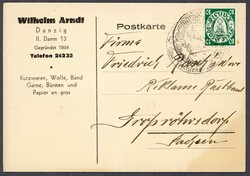 Wilhelm Arndt
Danzig
II. Damm 13
Gegründet 1804
Telefon 24232
Kurzwaren, Wolle, Band
Garne, Bürsten und
Papier en gros
Postkarte
Firma
Friedrich
Großröhrsdorf
Sachsen